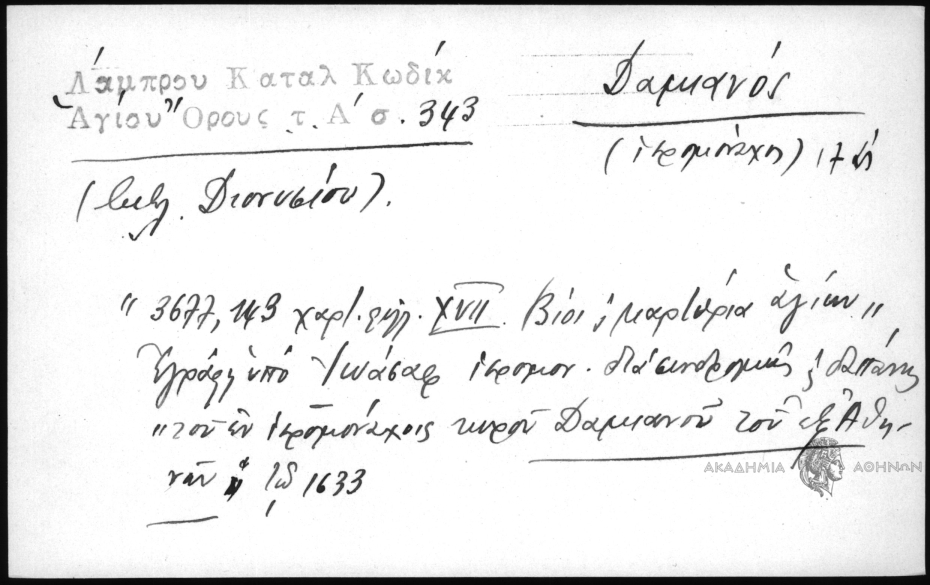 Λάμπρου Καταλ Κωδίκ
Ἁγίου Ὄρους τ. Α΄ σ. 343
Δαμιανός
(ἱερομόναχος) 17 αἰ
(Διονυσίου).
" 3677, 143 χαρτ. φυλ. XVII. Βίοι κ μαρτύρια ἁγίων "
Ἐγράφη ὑπὸ Ἰωάσαφ ἱερομον. διὰ συνδρομῆς κ δαπάνης
" τοῦ ἐν ἱερομονάχοις κυροῦ Δαμιανοῦ τοῦ ἐξ Ἀθη-
νῶν 1633
ΑΚΑΔΗΜΙΑ ΑΘΗΝΩΝ